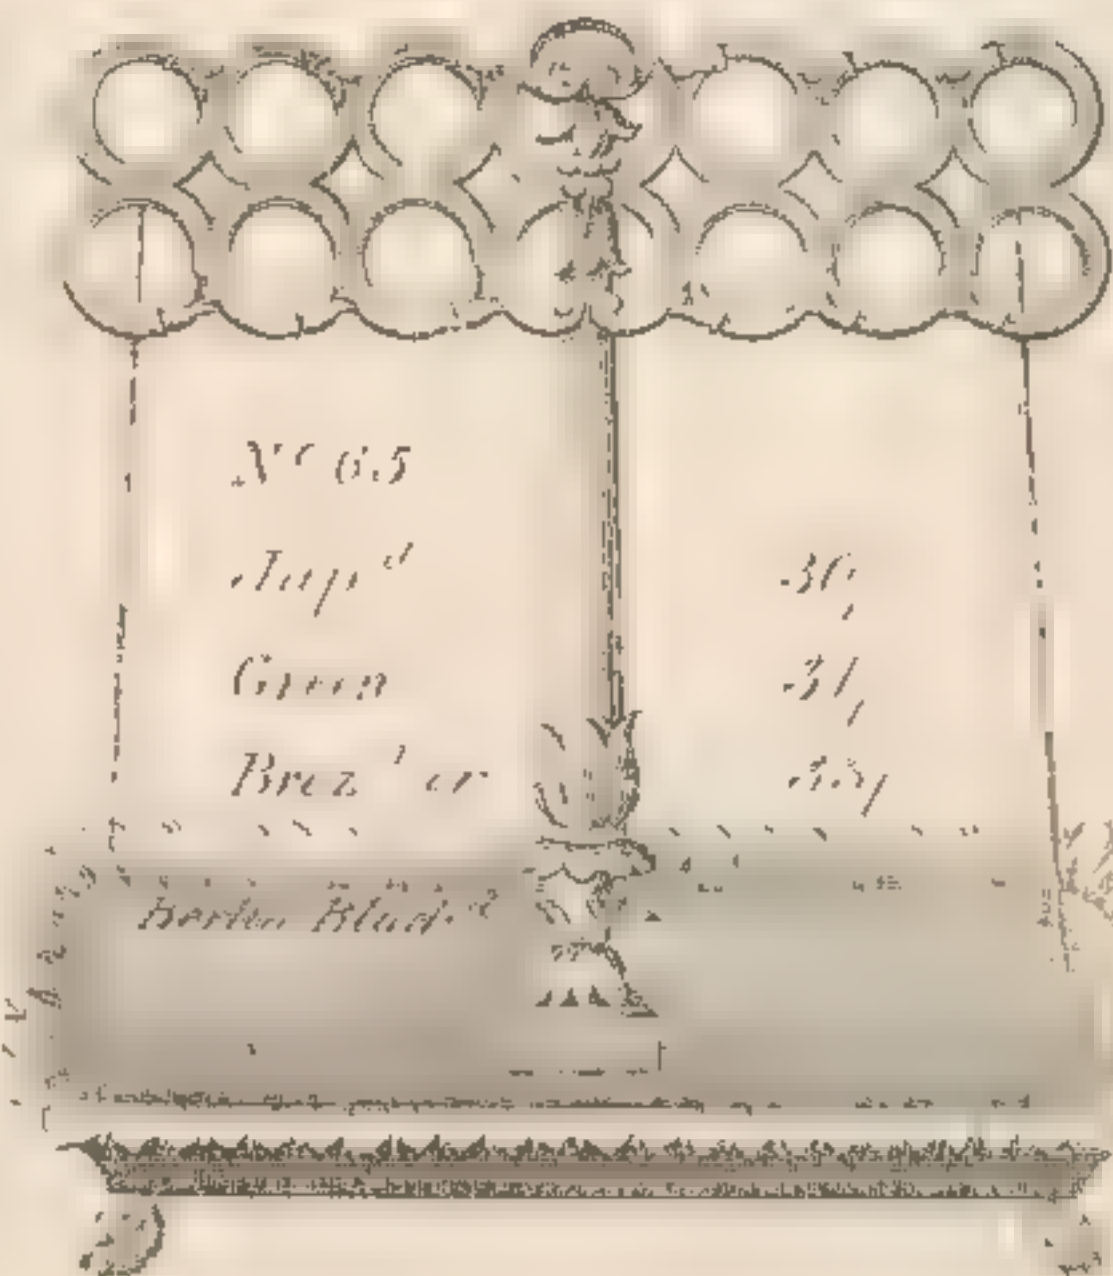 No 65
Jap'd 30/
Green 31/
Bronz'd or
Berlin Black'd